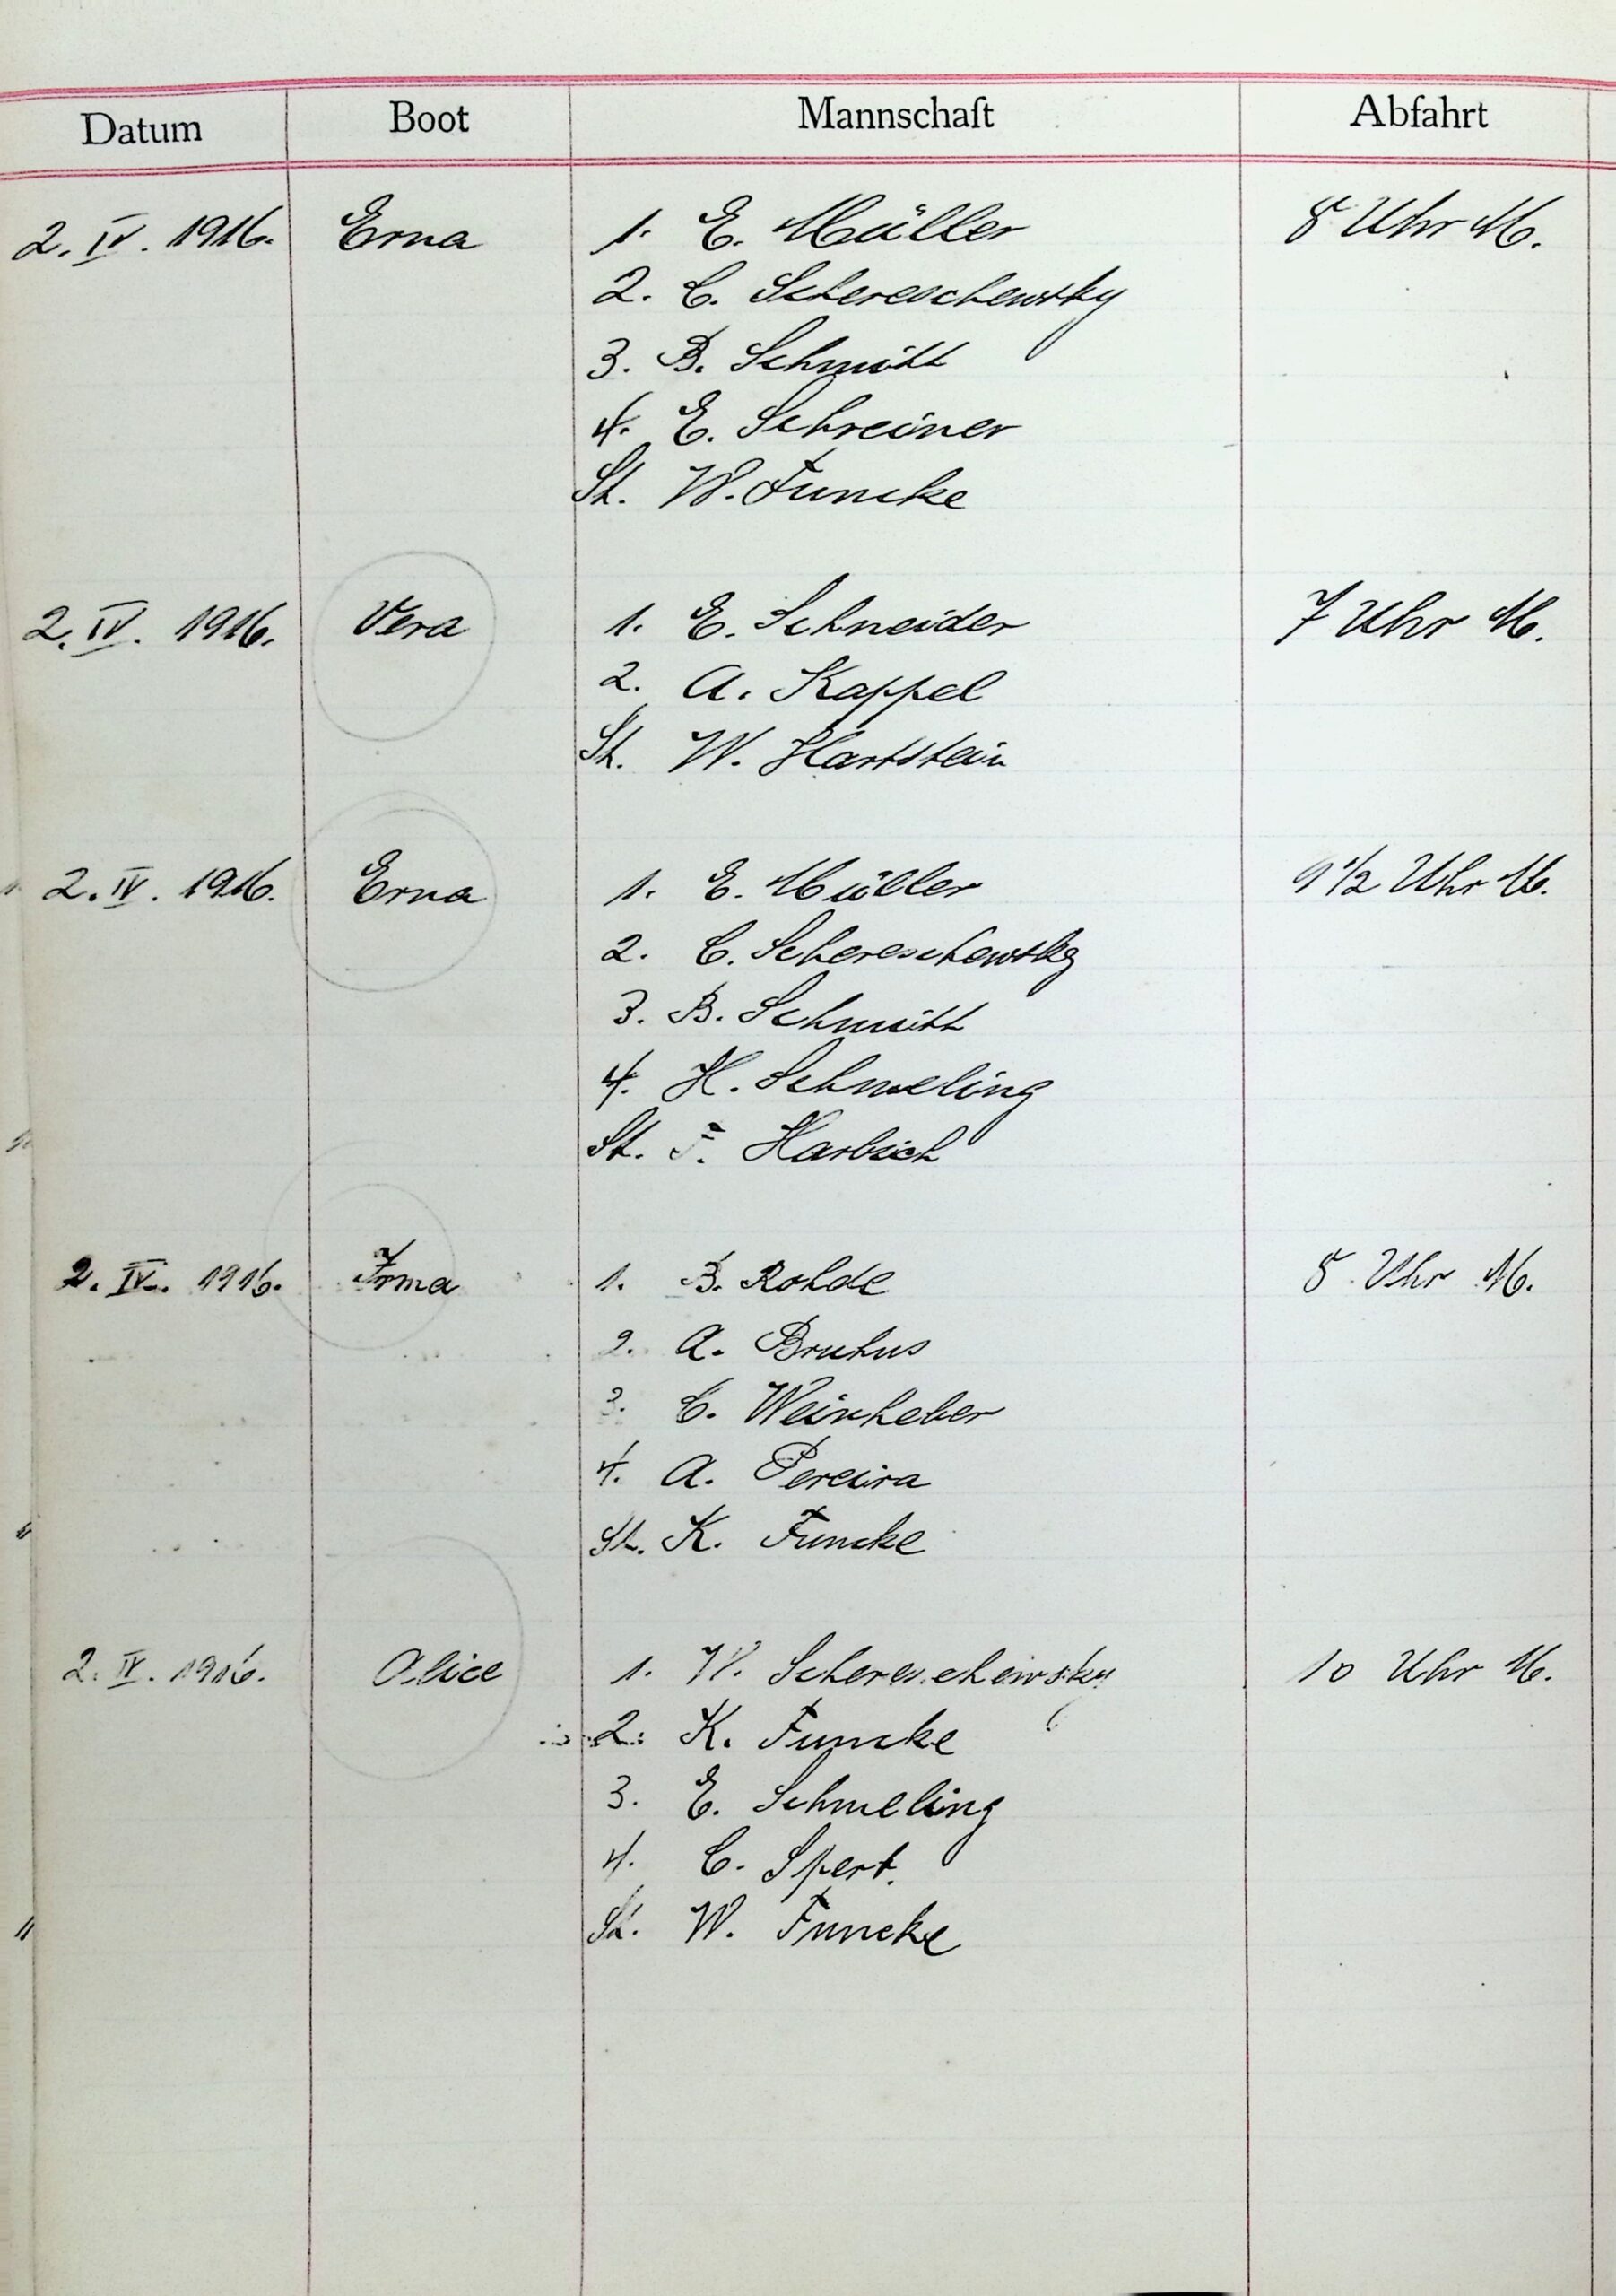 Datum Boot Mannschaft Abfahrt
2. IV. 1916. Erna 1. E. Müller 8 Uhr M.
2. C. Schereschewsky
3. B. Schmitt
4. E. Schreiner
St. W. Funcke
2. IV. 1916. Vera 1. E. Schneider 7 Uhr M.
2. A. Kappel
St. W. Hartstein
2. IV. 1916. Erna 1. E. Müller 9 1/2 Uhr M.
2. C. Schereschewsky
3. B. Schmitt
4. H. Schmeling
St. F. Harbich
2. IV. 1916. Irma 1. B. Rohde 8 Uhr M.
2. A. Bruhns
3. C. Weinheber
4. A. Pereira
St. K. Funcke
2. IV. 1916. Alice 1. W. Schereschewsky 10 Uhr M.
2. K. Funcke
3. E. Schmeling
4. C. Spert.
St. W. Funcke